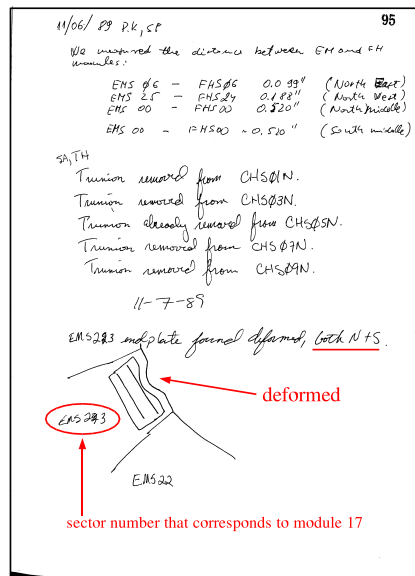 11/06/89 P.K, SP
95
We measured the distance between EM and FH
modules:
EMS Ø6 - FHSØ6 0.099" (North East)
EMS 25 - FHS24 0.188" (North West)
EMS 00 - FHS00 0.520" (North middle)
EMS 00 - FHS00 ~0.520" (South middle)
SA, TH
Trunion removed from CHSØ1N.
Trunion removed from CHSØ3N.
Trunion already removed from CHSØ5N.
Trunion removed from CHSØ7N.
Trunion removed from CHSØ9N.
11-7-89
EMS23 endplate found deformed, both N+S.
deformed
EMS23
EMS22
sector number that corresponds to module 17